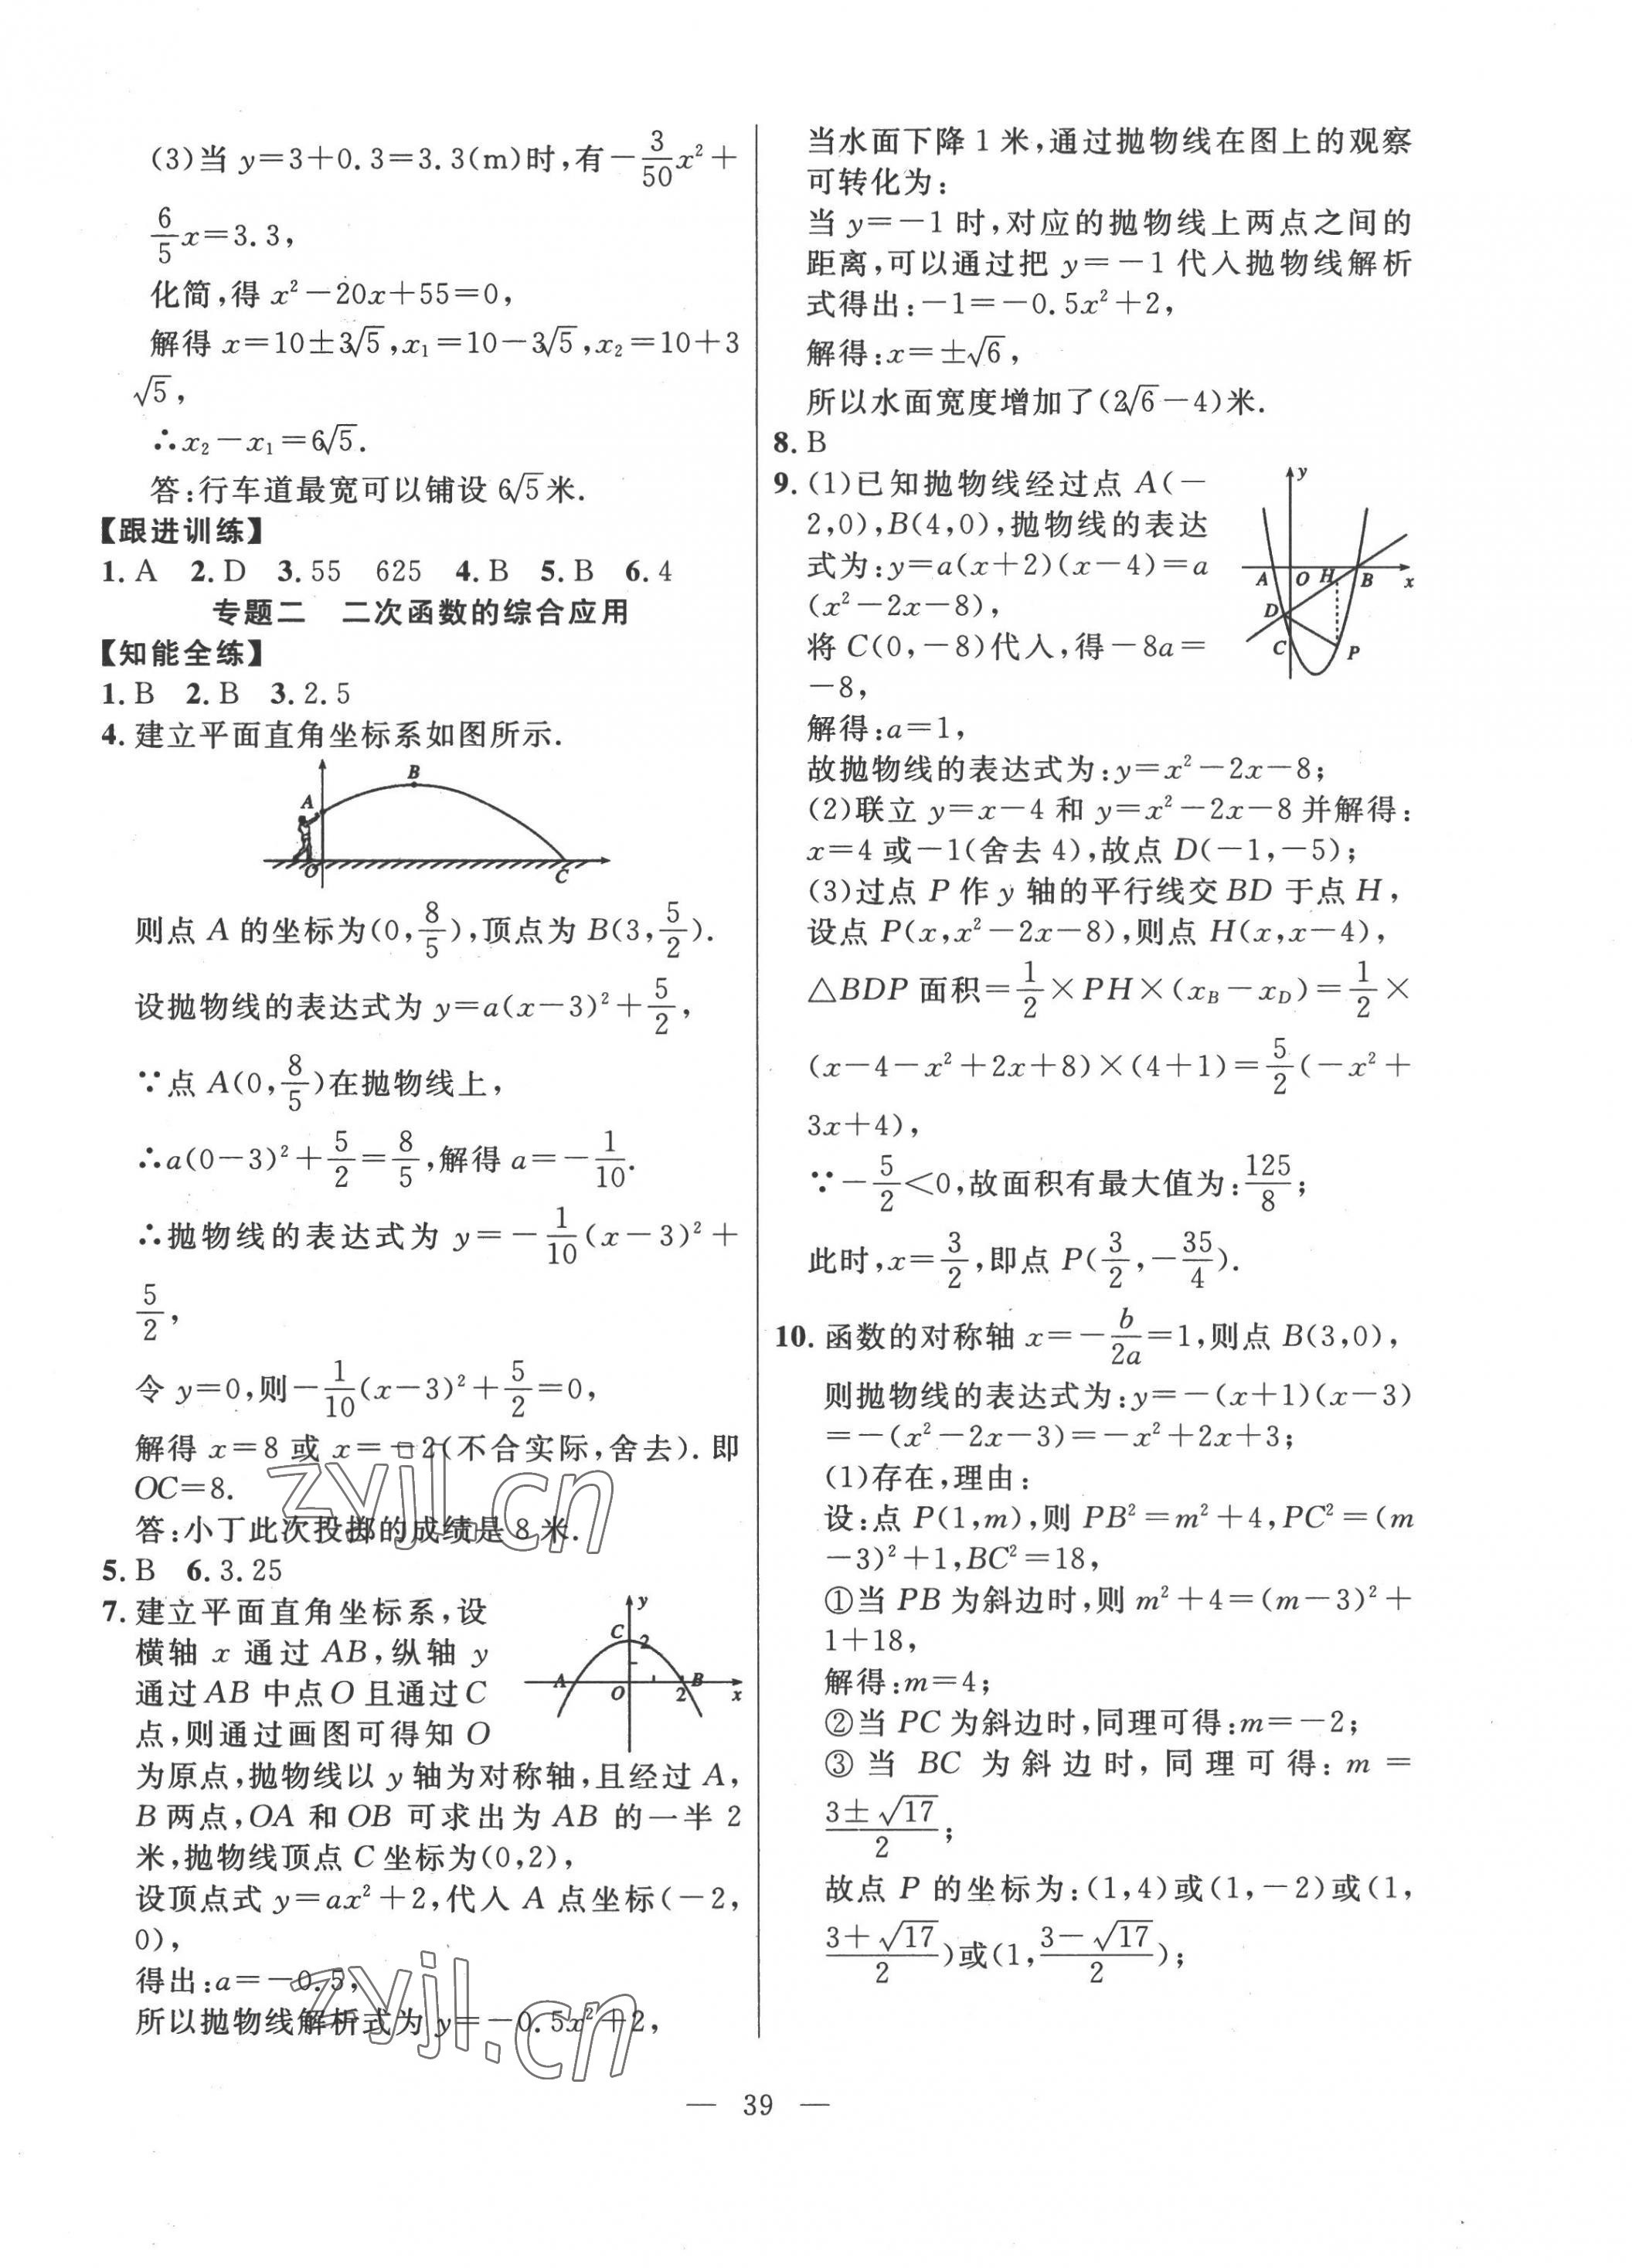 (3)当 y=3+0.3=3.3(m)时,有-3/50x²+
6/5x=3.3,
化简,得 x²-20x+55=0,
解得 x=10±3√5,x₁=10-3√5,x₂=10+3
√5,
∴x₂-x₁=6√5.
答:行车道最宽可以铺设 6√5米.
【跟进训练】
1.A 2.D 3.55 625 4.B 5.B 6.4
专题二 二次函数的综合应用
【知能全练】
1.B 2.B 3.2.5
4.建立平面直角坐标系如图所示.
B
A
O
C
则点 A 的坐标为(0,8/5),顶点为 B(3,5/2).
设抛物线的表达式为 y=a(x-3)²+5/2,
∵点 A(0,8/5)在抛物线上,
∴a(0-3)²+5/2=8/5,解得 a=-1/10.
∴抛物线的表达式为 y=-1/10(x-3)²+
5/2,
令 y=0,则-1/10(x-3)²+5/2=0,
解得 x=8 或 x=-2(不合实际,舍去).即
OC=8.
答:小丁此次投掷的成绩是 8 米.
5.B 6.3.25
7.建立平面直角坐标系,设
横轴 x 通过 AB,纵轴 y
通过 AB 中点 O 且通过 C
点,则通过画图可得知 O
y
C
2
A
O
2
B
x
为原点,抛物线以 y 轴为对称轴,且经过 A,
B 两点,OA 和 OB 可求出为 AB 的一半 2
米,抛物线顶点 C 坐标为(0,2),
设顶点式 y=ax²+2,代入 A 点坐标(-2,
0),
得出:a=-0.5,
所以抛物线解析式为 y=-0.5x²+2,
当水面下降 1 米,通过抛物线在图上的观察
可转化为:
当 y=-1 时,对应的抛物线上两点之间的
距离,可以通过把 y=-1 代入抛物线解析
式得出:-1=-0.5x²+2,
解得:x=±√6,
所以水面宽度增加了(2√6-4)米.
8.B
9.(1)已知抛物线经过点 A(-
2,0),B(4,0),抛物线的表达
式为:y=a(x+2)(x-4)=a
(x²-2x-8),
将 C(0,-8)代入,得-8a=
-8,
y
A
O
H
B
x
D
C
P
解得:a=1,
故抛物线的表达式为:y=x²-2x-8;
(2)联立 y=x-4 和 y=x²-2x-8 并解得:
x=4 或-1(舍去 4),故点 D(-1,-5);
(3)过点 P 作 y 轴的平行线交 BD 于点 H,
设点 P(x,x²-2x-8),则点 H(x,x-4),
△BDP 面积=1/2×PH×(x_B-x_D)=1/2×
(x-4-x²+2x+8)×(4+1)=5/2(-x²+
3x+4),
∵-5/2<0,故面积有最大值为:125/8;
此时,x=3/2,即点 P(3/2,-35/4).
10.函数的对称轴 x=-b/2a=1,则点 B(3,0),
则抛物线的表达式为:y=-(x+1)(x-3)
=-(x²-2x-3)=-x²+2x+3;
(1)存在,理由:
设:点 P(1,m),则 PB²=m²+4,PC²=(m
-3)²+1,BC²=18,
①当 PB 为斜边时,则 m²+4=(m-3)²+
1+18,
解得:m=4;
②当 PC 为斜边时,同理可得:m=-2;
③当 BC 为斜边时,同理可得:m=
3±√17/2;
故点 P 的坐标为:(1,4)或(1,-2)或(1,
3+√17/2)或(1,3-√17/2);
zyjl.cn
zyjl.cn
— 39 —